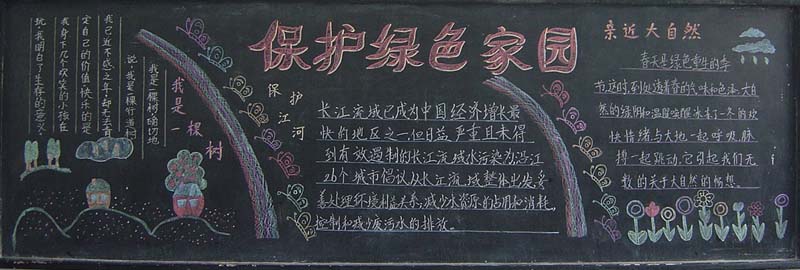 保护绿色家园
我是一棵树
我是一棵树确切地
说，我是一棵行道树
我已近不惑之年却无法肯
定自己的价值快乐的是
我身下几个欢笑的小孩在
玩，我明白了生存的意义
保护江河
长江流域已成为中国经济增长最
快的地区之一但日益严重且未得
到有效遏制的长江流域水污染为沿江
26个城市倡议从长江流域整体出发，妥
善处理环境利益关系，减少水资源的占用和消耗，
控制和减少废污水的排放。
亲近大自然
春天是绿色重生的季
节，这时，到处透着春的气味和色泽，大自
然的绿阴和温暖唤醒冰冻了一冬的欢
快情绪与大地一起呼吸脉
搏一起跳动，它引起我们无
数的关于大自然的畅想